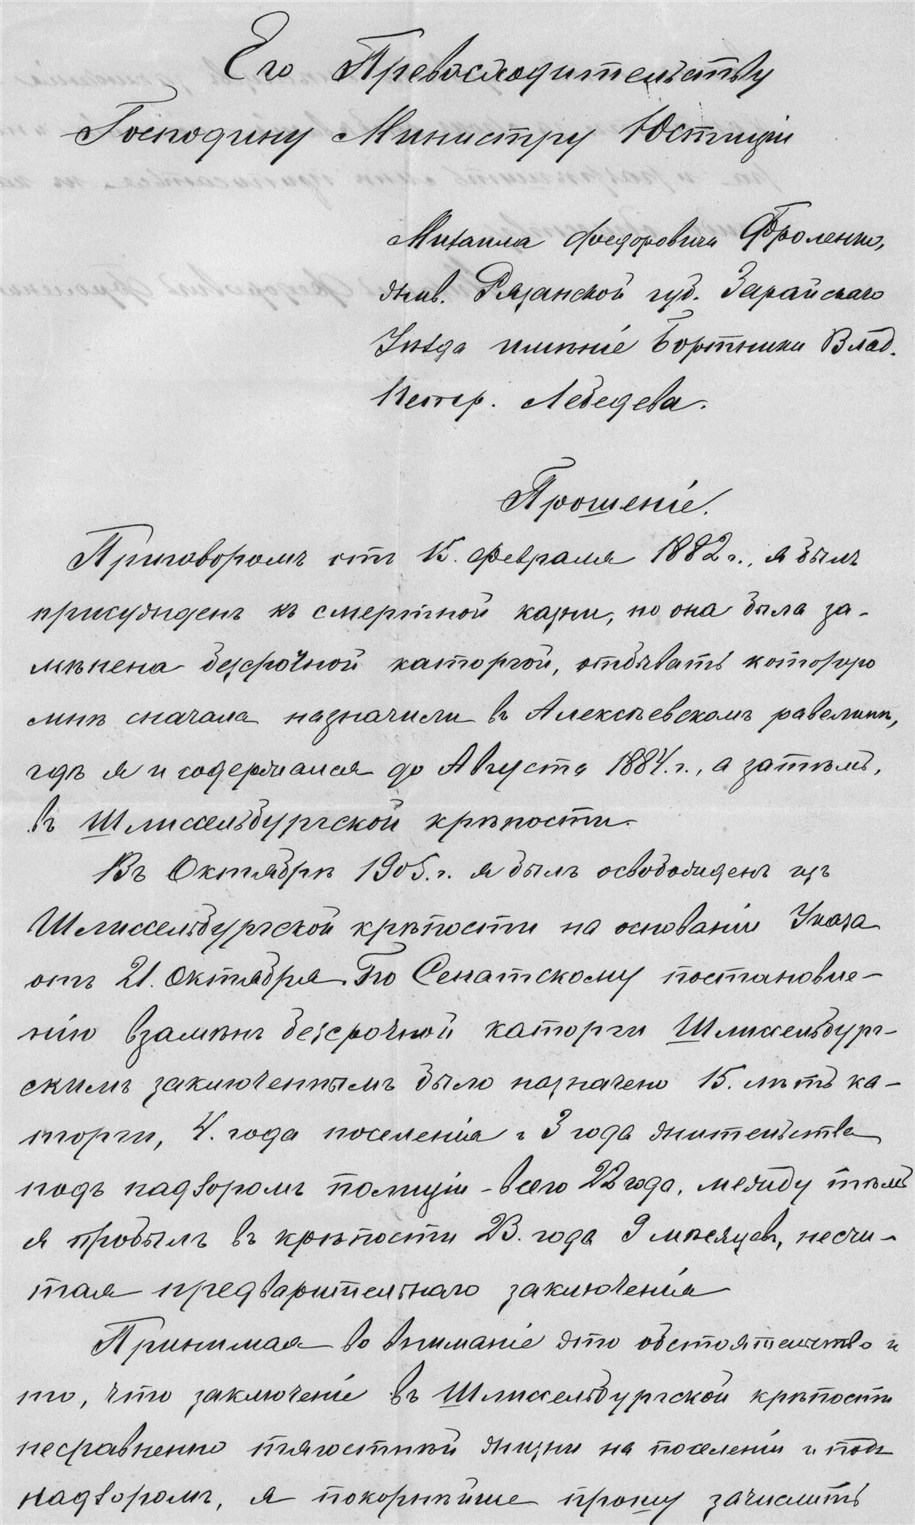 Его Превосходительству
Господину Министру Юстиціи
Михаила Федоровича Фроленко,
жив. Рязанской губ. Зарайскаго
Уѣзда имѣніе Бортники Влад.
Нестер. Лебедева.
Прошеніе.
Приговоромъ отъ 15. февраля 1882 г., я былъ
присужденъ къ смертной казни, но она была за-
мѣнена безсрочной каторгой, отбывать которую
мнѣ сначала назначили въ Алексѣевскомъ равелинѣ,
гдѣ я и содержался до Августа 1884. г., а затѣмъ,
въ Шлиссельбургской крѣпости.
Въ Октябрѣ 1905. г. я былъ освобожденъ изъ
Шлиссельбургской крѣпости на основаніи Указа
отъ 21. Октября. По Сенатскому постановле-
нію взамѣнъ безсрочной каторги Шлиссельбург-
скимъ заключеннымъ было назначено 15. лѣтъ ка-
торги, 4. года поселенія и 3 года жительства
подъ надзоромъ полиціи - всего 22 года, между тѣмъ
я пробылъ въ крѣпости 23. года 9 мѣсяцевъ, несчи-
тая предварительнаго заключенія
Принимая во вниманіе это обстоятельство и
то, что заключеніе въ Шлиссельбургской крѣпости
несравненно тягостнѣй жизни на поселеніи и подъ
надзоромъ, я покорнѣйше прошу зачислить